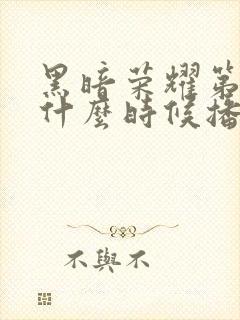 黑暗荣耀第
什麼時候播
不與不